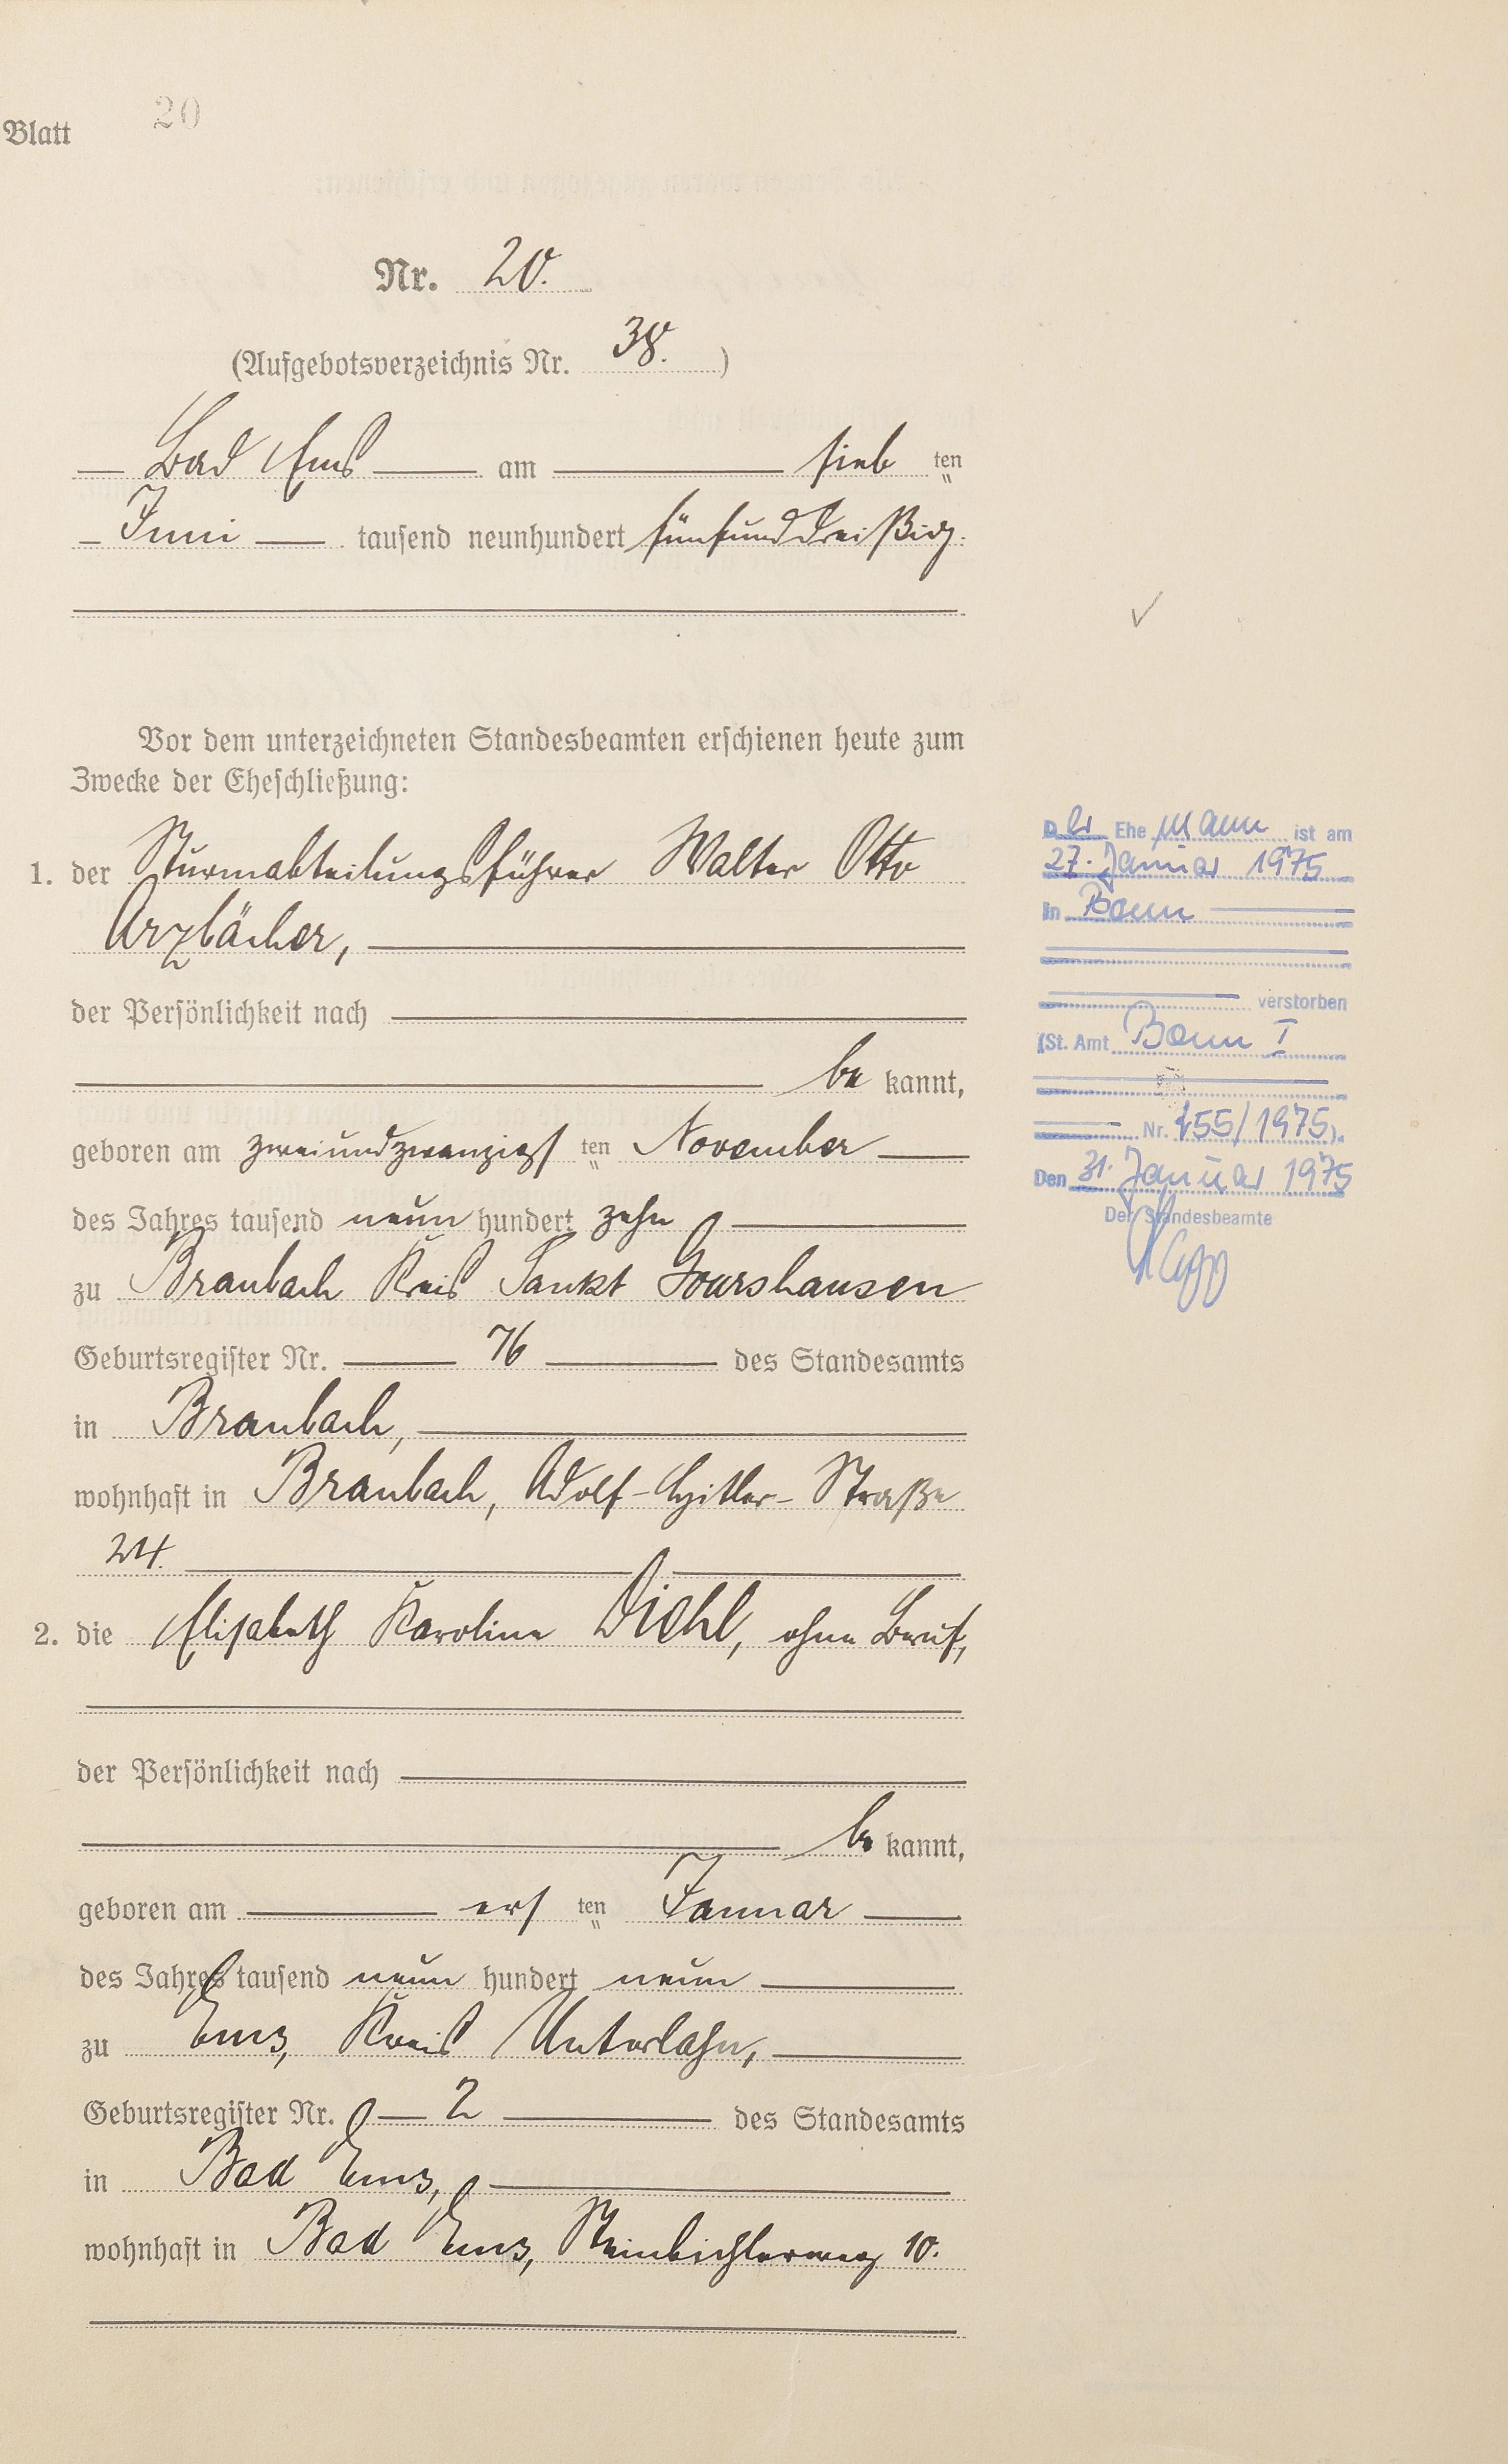 Blatt 20
Nr. 20.
(Aufgebotsverzeichnis Nr. 38.)
Bad Ems am sieb ten
Juni tausend neunhundert fünfunddreißig.
Vor dem unterzeichneten Standesbeamten erschienen heute zum
Zwecke der Eheschließung:
1. der Sturmabteilungsführer Walter Otto
Arzbächer,
der Persönlichkeit nach
be kannt,
geboren am zweiundzwanzigs ten November
des Jahres tausend neun hundert zehn
zu Braubach Kreis Sankt Goarshausen
Geburtsregister Nr. 76 des Standesamts
in Braubach,
wohnhaft in Braubach, Adolf-Hitler-Straße
24.
2. die Elisabeth Karoline Diehl, ohne Beruf,
der Persönlichkeit nach
be kannt,
geboren am ers ten Januar
des Jahres tausend neun hundert neun
zu Ems, Kreis Unterlahn,
Geburtsregister Nr. 2 des Standesamts
in Bad Ems,
wohnhaft in Bad Ems, 10.
Der Ehe mann ist am
27. Januar 1975
in Bonn
verstorben
(St. Amt Bonn I
Nr. 155/1975).
Den 31. Januar 1975
Der Standesbeamte